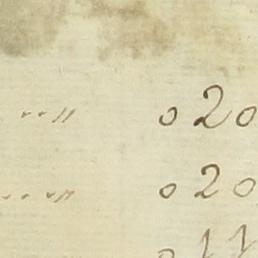 ..〃 0 20
...〃 0 20
0 11